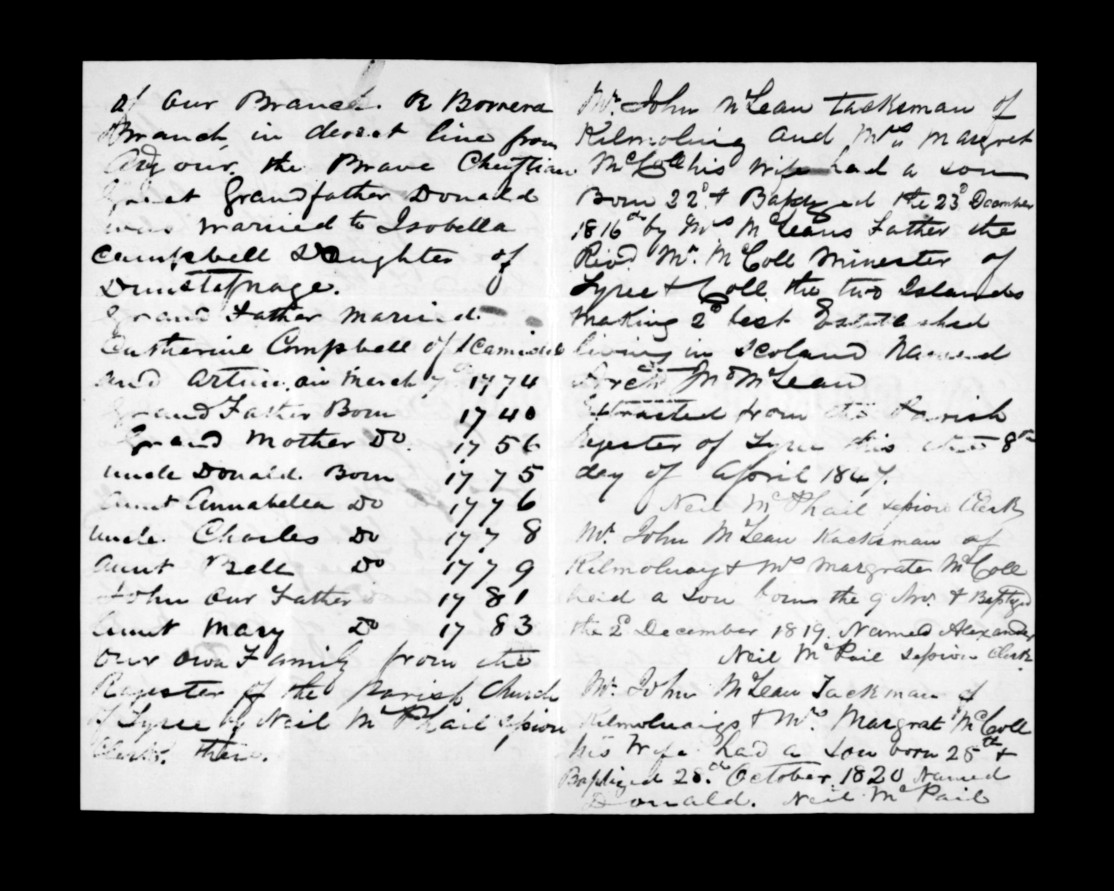 of our Branch. or Borrera
Branch in direct line from
Ardgour. the Brave Chieftian
Great Grandfather Donald
was married to Isobella
Campbell Daughter of
Dunstafnage.
Grand Father married
Catherine Campbell of
and in March 7th 1774
Grand Father Born 1740
Grand Mother Do. 1756
uncle Donald. Born 1775
Aunt Annabella Do 1776
uncle. Charles Do 1778
Aunt Bell Do 1779
John our Father 1781
Aunt Mary Do 1783
our own Family from the
Regester of the parish Church
of Tyree by Neil McPhail Session
Clerk. there.
Mr. John McLean tacksman of
Kilmoluag and Mrs Margret
McColl his wife had a son
Born 22d & Baptized the 23d December
1816 by Mrs McLeans Father the
Rivd Mr. McColl Minester of
Tyree & Coll. the two Islands
making 2d best Established
living in Scoland Named
McLean
Extracted from the Parish
Regester of Tyree this the 8th
day of April 1847.
Neil McPhail Session Clerk
Mr. John McLean Tacksman of
Kilmoluag & Mrs Margrate McColl
had a son born the 9 Nov. & Baptized
the 2d December 1819. Named Alexander
Neil McPail Session Clerk
Mr. John McLean Tackman of
Kilmoluaigs & Mrs Margrat McColl
his Wife had a son born 25th &
Baptized 28th October 1820 Named
Donald. Neil McPail